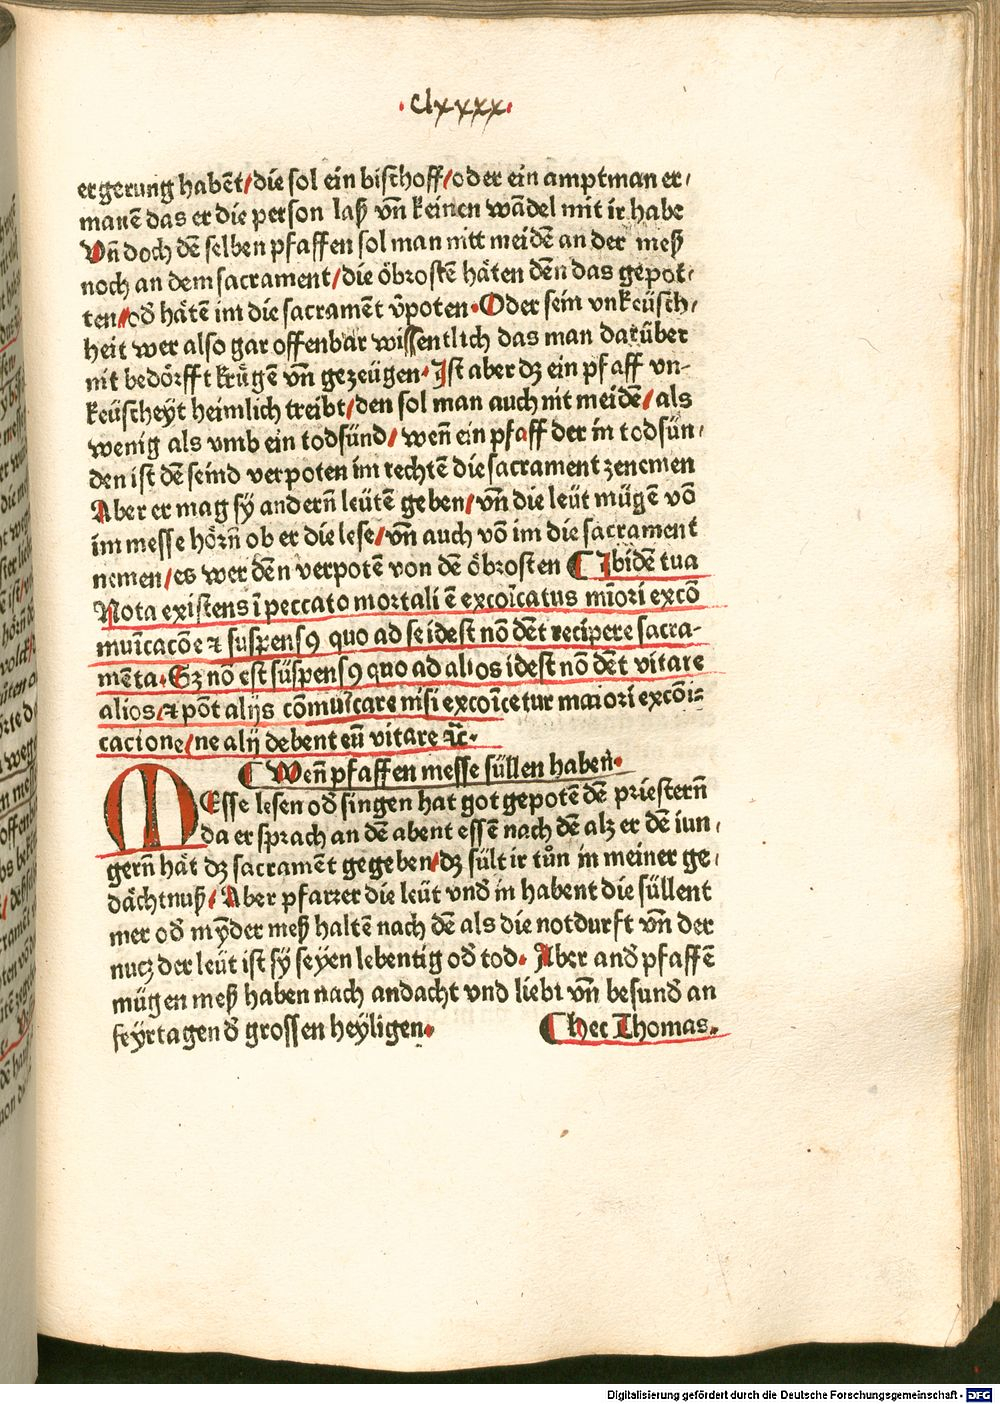 ·clxxxx·
ergerung habẽt/die sol ein bischoff/oder ein amptman er⸗
manẽ das er die person laß vñ keinen wãdel mit ir habe
Vñ doch dẽ selben pfaffen sol man nitt meidẽ an der meß
noch an dem sacrament/die öbrostẽ häten dẽn das gepot⸗
ten/od̄ hätẽ im die sacramẽt v̄poten·Oder sein vnkeüsch⸗
heit wer also gar offenbar wissentlich das man darüber
nit bedörfft krügen vñ gezeügen·Ist aber dz ein pfaff vn⸗
keüscheyt heimlich treibt/den sol man auch nit meidẽ/als
wenig als vmb ein todsünd/weñ ein pfaff der in todsün⸗
den ist dẽ seind verpoten im rechtẽ die sacrament zenemen
Aber er mag sÿ anderñ leütẽ geben/vñ die leüt mügẽ võ
im messe hörñ ob er die lese/vñ auch võ im die sacrament
nemen/es wer dẽn verpotẽ von dẽ öbrosten ¶ Ibidẽ tua
Nota existens ĩ peccato mortali ẽ excoĩcatus mĩori excõ
muĩcacõe ⁊ suspensꝯ quo ad se idest nõ dẽt recipere sacra⸗
mẽta·Sz nõ est süspensꝯ quo ad alios idest nõ dẽt vitare
alios/⁊ põt alijs cõmuĩcare nisi excoĩcetur maiori excõi⸗
cacione/ne alij debent eũ vitare ⁊c̄·
¶ Weñ pfaffen messe süllen haben·
MEsse lesen od̄ singen hat got gepotẽ dẽ priesterñ
da er sprach an dẽ abent essẽ nach dẽ alz er dẽ iun⸗
gerñ hät dz sacramẽt gegeben/dz sült ir tůn in meiner ge⸗
dächtnuß/Aber pfarrer die leüt vnd̄ in habent die süllent
mer od̄ mÿder meß haltẽ nach dẽ als die notdurft vñ der
nucz der leüt ist sÿ seyen lebentig od̄ tod· Aber and̄ pfaffẽ
mügen meß haben nach andacht vnd liebi vñ besund̄ an
feyrtagen d̄ grossen heÿligen· ¶ hec Thomas·
Digitalisierung gefördert durch die Deutsche Forschungsgemeinschaft - DFG